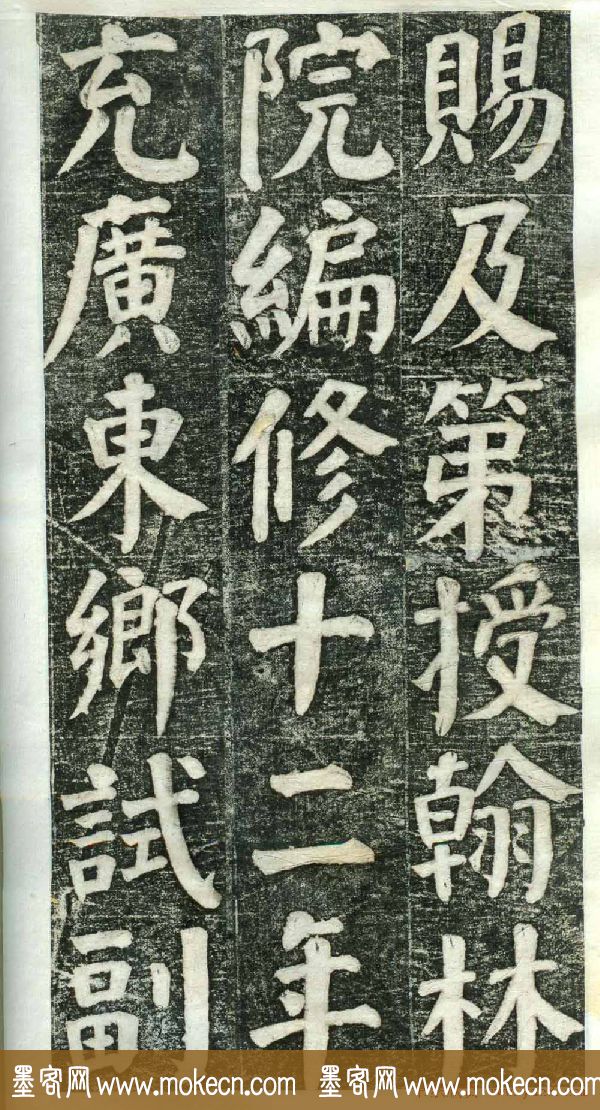 賜及第授翰林
院編修十二年
充廣東鄉試副
墨客网 www.mokecn.com 墨客网 www.mokecn.com 墨客网 www.mokecn.com